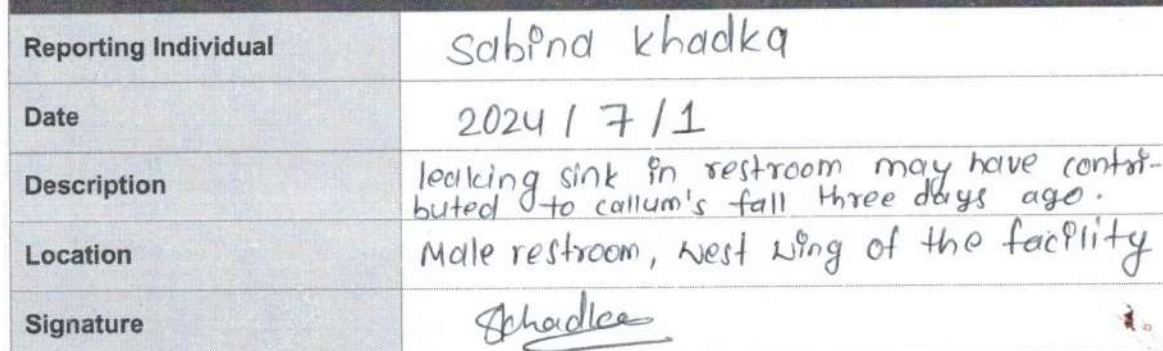 Reporting Individual Sabina Khadka
Date 2024 / 7 / 1
Description leaking sink in restroom may have contri-
buted to callum's fall three days ago.
Location Male restroom, west wing of the facility
Signature SKhadka